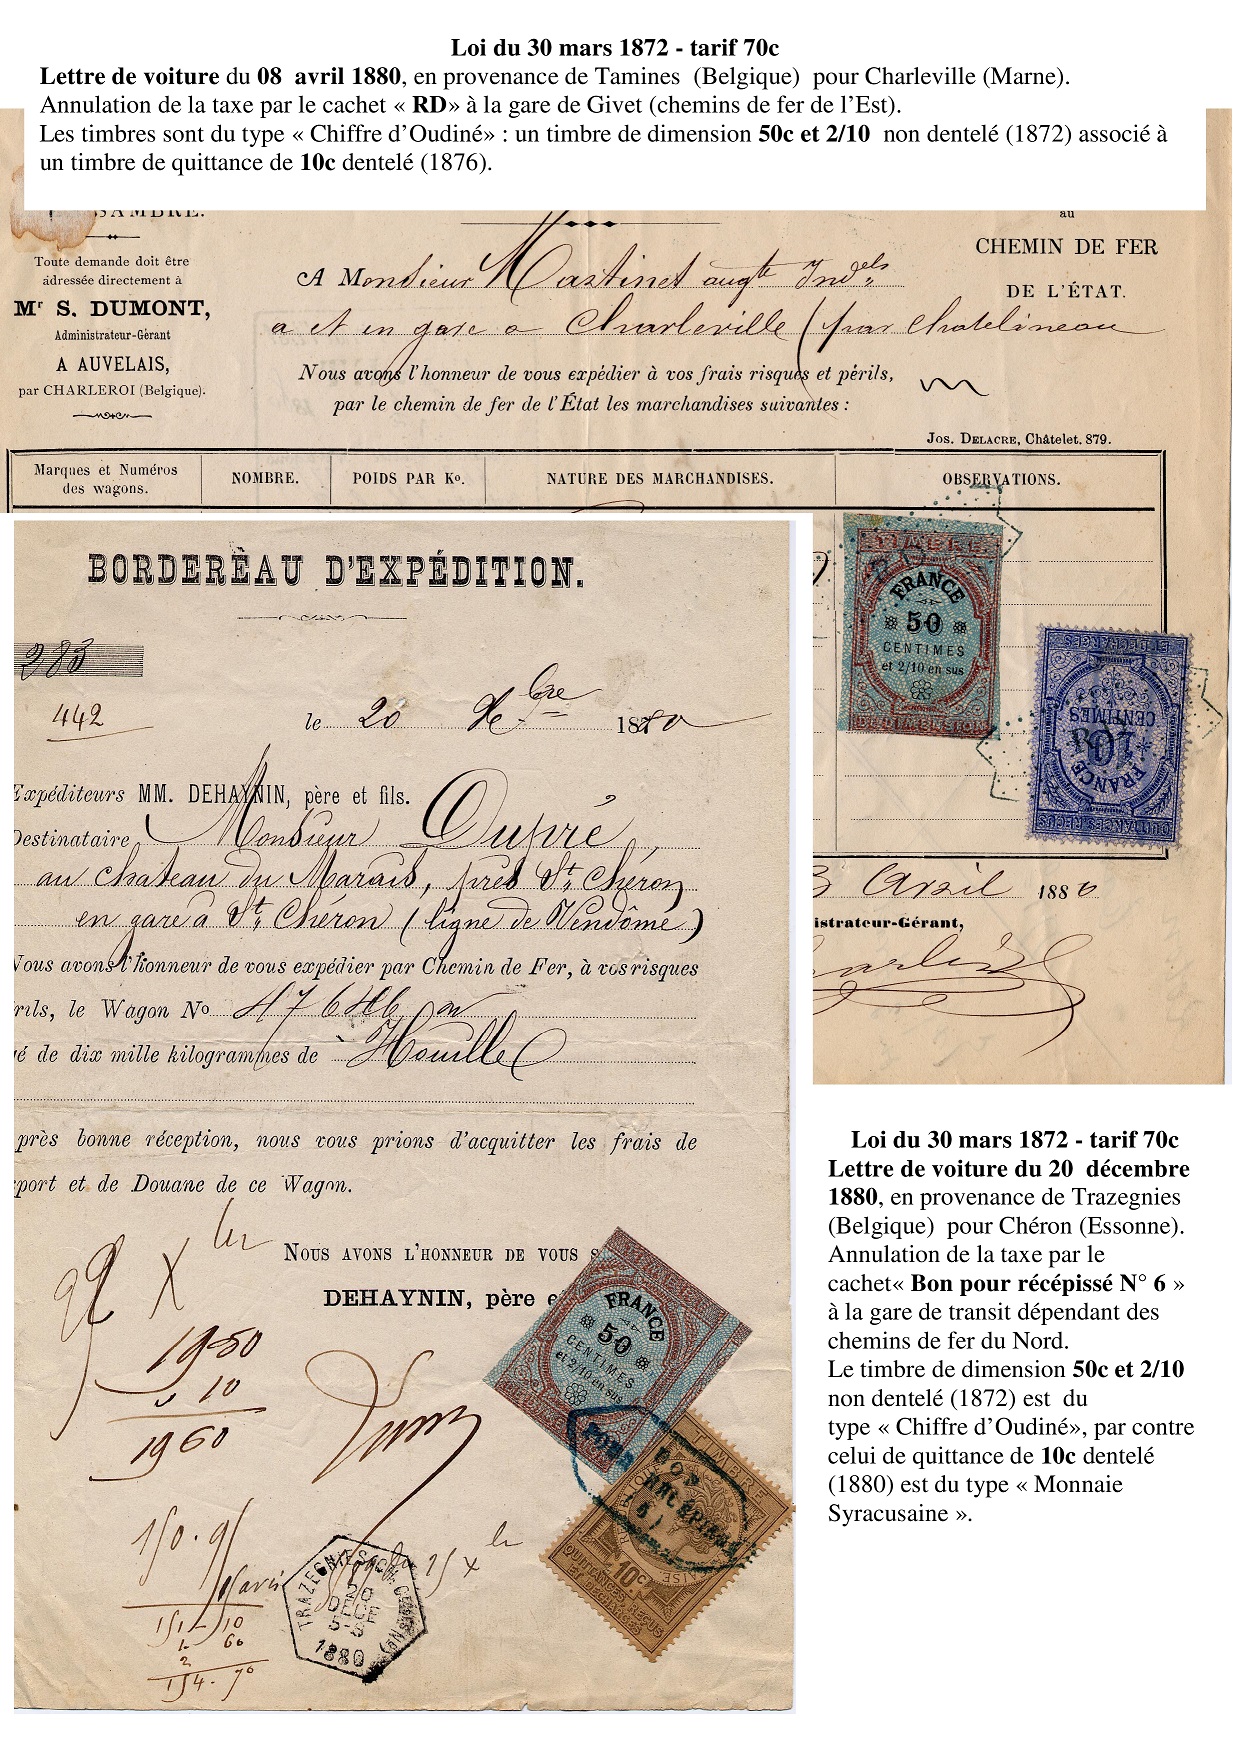 Loi du 30 mars 1872 - tarif 70c
Lettre de voiture du 08 avril 1880, en provenance de Tamines (Belgique) pour Charleville (Marne).
Annulation de la taxe par le cachet « RD» à la gare de Givet (chemins de fer de l’Est).
Les timbres sont du type « Chiffre d’Oudiné» : un timbre de dimension 50c et 2/10 non dentelé (1872) associé à
un timbre de quittance de 10c dentelé (1876).
SAMBRE.
Toute demande doit être
adressée directement à
Mr S. DUMONT,
Administrateur-Gérant
A AUVELAIS,
par CHARLEROI (Belgique).
au
CHEMIN DE FER
DE L'ÉTAT.
A Monsieur Mastinet augte Indels
a et en gare a Charleville (par Chatelineau
Nous avons l'honneur de vous expédier à vos frais risques et périls,
par le chemin de fer de l'État les marchandises suivantes :
Jos. DELACRE, Châtelet. 879.
Marques et Numéros
des wagons.
NOMBRE.
POIDS PAR Ko.
NATURE DES MARCHANDISES.
OBSERVATIONS.
TIMBRE
FRANCE
50
CENTIMES
et 2/10 en sus
DE DIMENSION
QUITTANCES REÇUS
ET DÉCHARGES
FRANCE
10
CENTIMES
Avril 1880
istrateur-Gérant,
BORDEREAU D'EXPÉDITION.
383
442
le 20 Xbre 1880
Expéditeurs MM. DEHAYNIN, père et fils.
Destinataire Monsieur Dupré,
au chateau du Marais, près St Chéron
en gare à St Chéron (ligne de Vendôme)
Nous avons l'honneur de vous expédier par Chemin de Fer, à vos risques
rils, le Wagon No 47646
é de dix mille kilogrammes de Houille
près bonne réception, nous vous prions d'acquitter les frais de
port et de Douane de ce Wagon.
NOUS AVONS L'HONNEUR DE VOUS S
DEHAYNIN, père e
FRANCE
50
CENTIMES
et 2/10 en sus
TIMBRE
10c
QUITTANCES REÇUS
ET DÉCHARGES
BON
POUR
RÉCÉPISSÉ
1950
10
1960
TRAZEGNIES
20
DEC
5-S
1880
Loi du 30 mars 1872 - tarif 70c
Lettre de voiture du 20 décembre
1880, en provenance de Trazegnies
(Belgique) pour Chéron (Essonne).
Annulation de la taxe par le
cachet« Bon pour récépissé N° 6 »
à la gare de transit dépendant des
chemins de fer du Nord.
Le timbre de dimension 50c et 2/10
non dentelé (1872) est du
type « Chiffre d’Oudiné», par contre
celui de quittance de 10c dentelé
(1880) est du type « Monnaie
Syracusaine ».